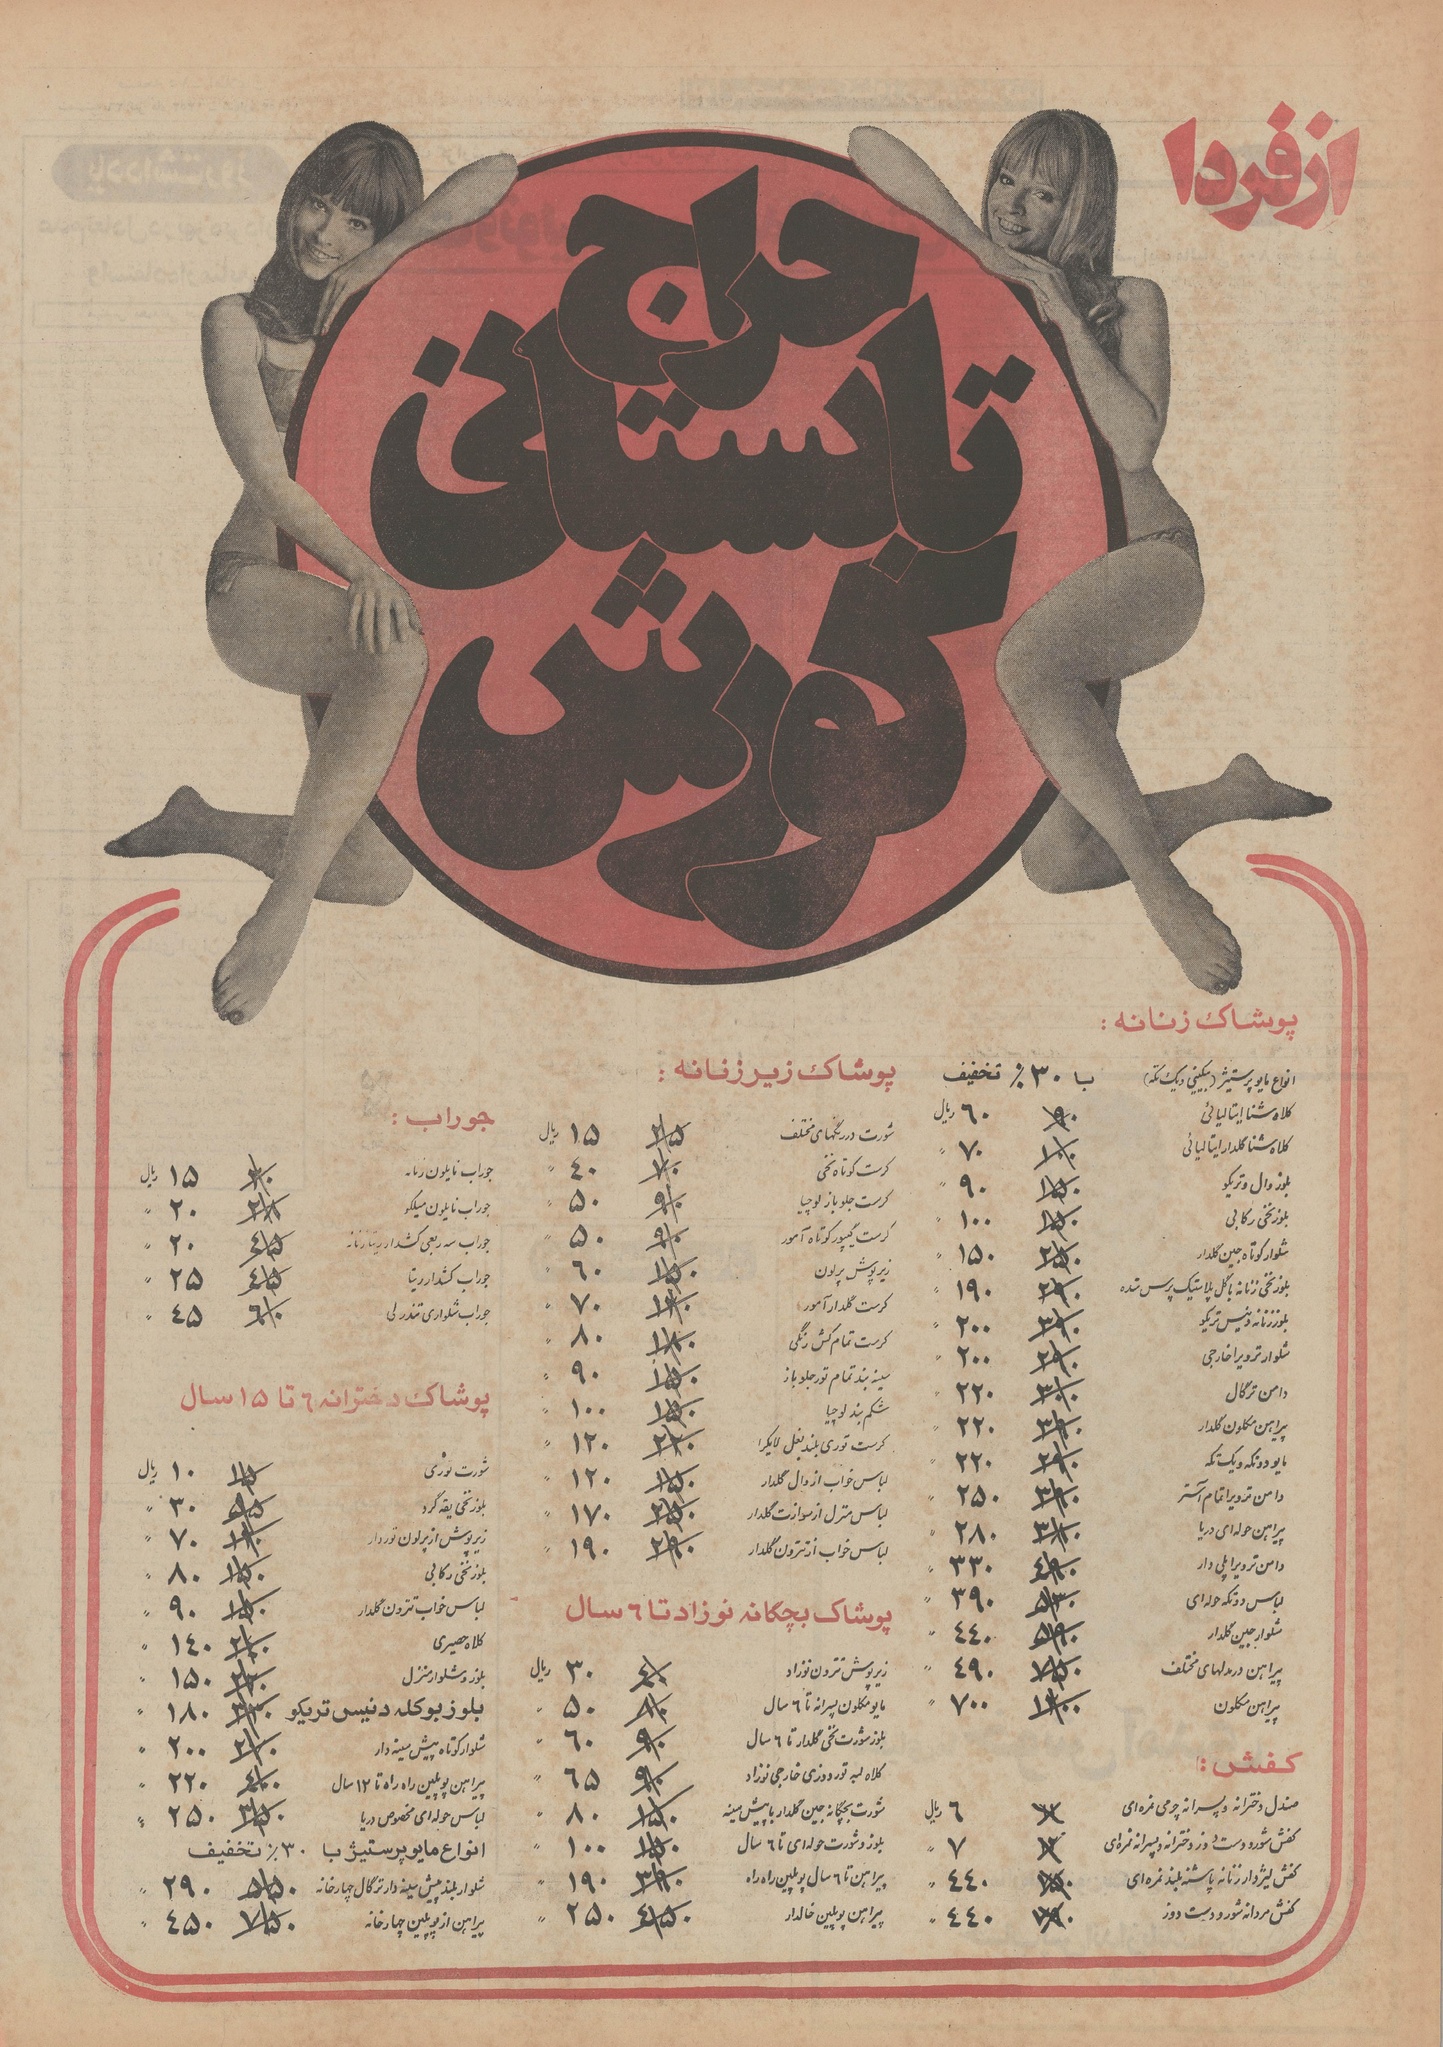 از فردا
حراج
تابستانی
کورش
پوشاک زنانه :
انواع مایو پرستیژ (بیکینی و یک تکه) با ۳۰٪ تخفیف
کلاه شنا ایتالیائی ۹۰ ۶۰ ریال
کلاه شنا گلدار ایتالیائی ۱۰۰ ۷۰ "
بلوز وال و تریکو ۱۵۰ ۹۰ "
بلوز نخی رکابی ۱۵۰ ۱۰۰ "
شلوار کوتاه جین گلدار ۲۵۰ ۱۵۰ "
بلوز نخی زنانه با گل پلاستیک پرس شده ۲۹۰ ۱۹۰ "
بلوز زنانه دنیس تریکو ۳۹۰ ۲۰۰ "
شلوار ترویرا خارجی ۲۹۰ ۲۰۰ "
دامن ترگال ۲۲۰ "
پیراهن مکلون گلدار ۳۹۰ ۲۲۰ "
مایو دو تکه و یک تکه ۲۹۰ ۲۲۰ "
دامن ترویرا تمام آستر ۳۹۰ ۲۵۰ "
پیراهن حوله‌ای دریا ۲۸۰ "
دامن ترویرا پلی دار ۴۹۰ ۳۳۰ "
لباس دو تکه حوله‌ای ۵۳۰ ۳۹۰ "
شلوار جین گلدار ۵۹۰ ۴۴۰ "
پیراهن در مدلهای مختلف ۷۵۰ ۴۹۰ "
پیراهن مکلون ۷۰۰ "
کفش :
صندل دخترانه و پسرانه چرمی نمره‌ای ۶ ریال
کفش شورو دست دوز دخترانه و پسرانه نمره‌ای ۱۲ ۷ "
کفش لیژدار زنانه پاشنه بلند نمره‌ای ۴۴۰ "
کفش مردانه شورو دست دوز ۴۴۰ "
پوشاک زیر زنانه :
شورت در رنگهای مختلف ۲۵ ۱۵ ریال
کرست کوتاه نخی ۷۰ ۴۰ "
کرست جلو باز لوچیا ۹۰ ۵۰ "
کرست گیپور کوتاه آمور ۹۰ ۵۰ "
زیرپوش پرلون ۱۵۰ ۶۰ "
کرست گلدار آمور ۷۰ "
کرست تمام کش رنگی ۸۰ "
سینه بند تمام تور جلو باز ۱۵۰ ۹۰ "
شکم بند لوچیا ۱۵۰ ۱۰۰ "
کرست توری بلند بغل لایکرا ۲۲۰ ۱۲۰ "
لباس خواب از وال گلدار ۱۵۰ ۱۲۰ "
لباس منزل از سوازت گلدار ۲۵۰ ۱۷۰ "
لباس خواب از تترون گلدار ۲۹۰ ۱۹۰ "
پوشاک بچگانه نوزاد تا ۶ سال
زیرپوش تترون نوزاد ۴۰ ۳۰ ریال
مایو مکلون پسرانه تا ۶ سال ۸۰ ۵۰ "
بلوز شورت نخی گلدار تا ۶ سال ۹۰ ۶۰ "
کلاه لبه تور دوزی خارجی نوزاد ۹۰ ۶۵ "
شورت بچگانه جین گلدار با پیش سینه ۱۵۰ ۸۰ "
بلوز و شورت حوله‌ای تا ۶ سال ۱۵۰ ۱۰۰ "
پیراهن تا ۶ سال پوپلین راه راه ۳۹۰ ۱۹۰ "
پیراهن پوپلین خالدار ۴۵۰ ۲۵۰ "
جوراب :
جوراب نایلون زنانه ۳۰ ۱۵ ریال
جوراب نایلون میلکو ۲۰ "
جوراب سه ربعی کشدار ریتا زنانه ۴۵ ۲۰ "
جوراب کشدار ریتا ۴۵ ۲۵ "
جوراب شلواری تندرلی ۶۰ ۴۵ "
پوشاک دخترانه ۶ تا ۱۵ سال
شورت توری ۱۵ ۱۰ ریال
بلوز نخی یقه گرد ۵۵ ۳۰ "
زیرپوش از پرلون توردار ۷۰ "
بلوز نخی رکابی ۱۵۰ ۸۰ "
لباس خواب تترون گلدار ۱۵۰ ۹۰ "
کلاه حصیری ۱۴۰ "
بلوز و شلوار منزل ۱۵۰ "
بلوز بوکله دنیس تریکو ۳۳۰ ۱۸۰ "
شلوار کوتاه پیش سینه دار ۲۰۰ "
پیراهن پوپلین راه راه تا ۱۲ سال ۴۰۰ ۲۲۰ "
لباس حوله‌ای مخصوص دریا ۳۵۰ ۲۵۰ "
انواع مایو پرستیژ با ۳۰٪ تخفیف
شلوار بلند پیش سینه دار ترگال چهارخانه ۵۵۰ ۲۹۰ "
پیراهن از پوپلین چهارخانه ۷۵۰ ۴۵۰ "